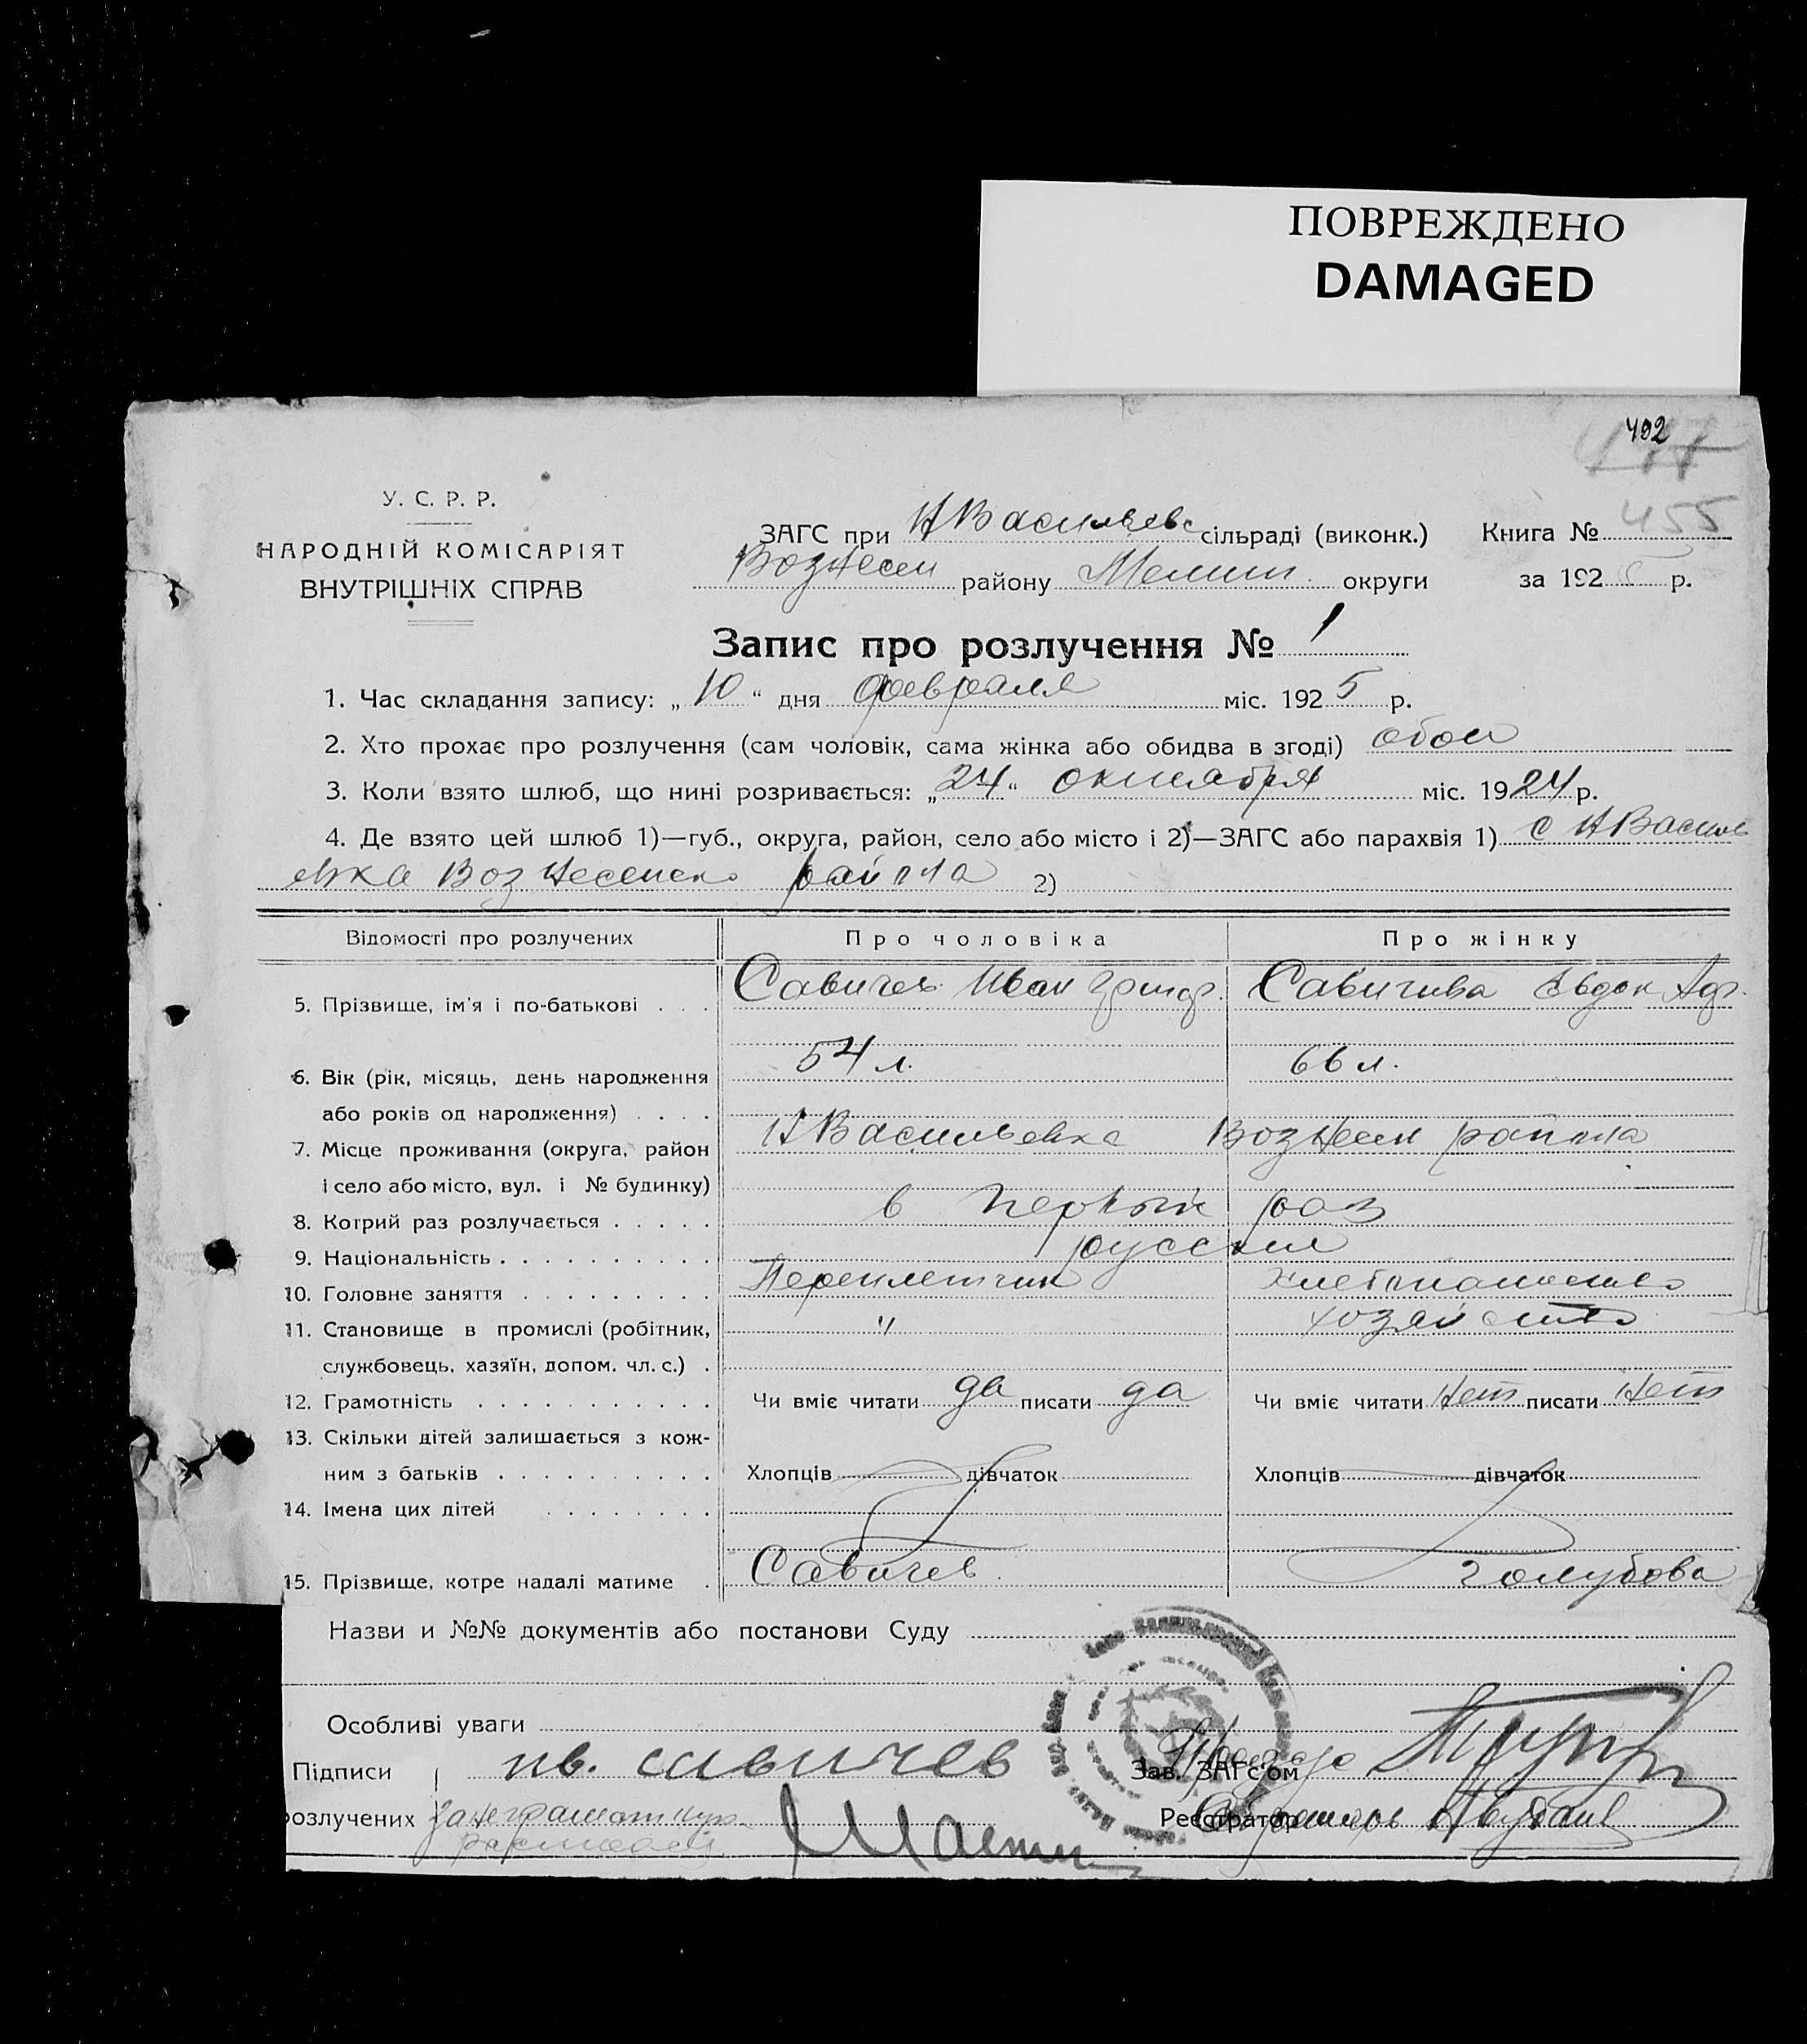 ПОВРЕЖДЕНО
DAMAGED
492
455
У. С. Р. Р.
НАРОДНІЙ КОМІСАРІЯТ
ВНУТРІШНІХ СПРАВ
ЗАГС при НВасильевс сільраді (виконк.) Книга №
Вознесен району Мелит. округи за 192 р.
Запис про розлучення № 1
1. Час складання запису: „10“ дня февраля міс. 1925 р.
2. Хто прохає про розлучення (сам чоловік, сама жінка або обидва в згоді) обои
3. Коли взято шлюб, що нині розривається: „24“ октября міс. 1924 р.
4. Де взято цей шлюб 1)—губ., округа, район, село або місто і 2)—ЗАГС або парахвія 1) с НВасиль
евка Вознесенско района 2)
Відомості про розлучених Про чоловіка Про жінку
5. Прізвище, ім'я і по-батькові . . . Савичев Иван Григ. Савичива Евдок Аф.
6. Вік (рік, місяць, день народження 54 л. 66 л.
або років од народження) . . . .
7. Місце проживання (округа, район НВасильевка Вознесен района
і село або місто, вул. і № будинку)
8. Котрий раз розлучається . . . . . в первый раз
9. Національність . . . . . . . . . . русския
10. Головне заняття . . . . . . . . . Переплетчик Хлебпашество
11. Становище в промислі (робітник, " хозяйство
службовець, хазяїн, допом. чл. с.) .
12. Грамотність . . . . . . . . . . . Чи вміє читати да писати да Чи вміє читати Нет писати Нет
13. Скільки дітей залишається з кож-
ним з батьків . . . . . . . . . . Хлопців дівчаток Хлопців дівчаток
14. Імена цих дітей . . . . . . . .
15. Прізвище, котре надалі матиме . Савичев. Голубова
Назви и №№ документів або постанови Суду
Особливі уваги
Підписи ив. савичев Зав. ЗАГС'ом
розлучених за неграмотную Реєстратор